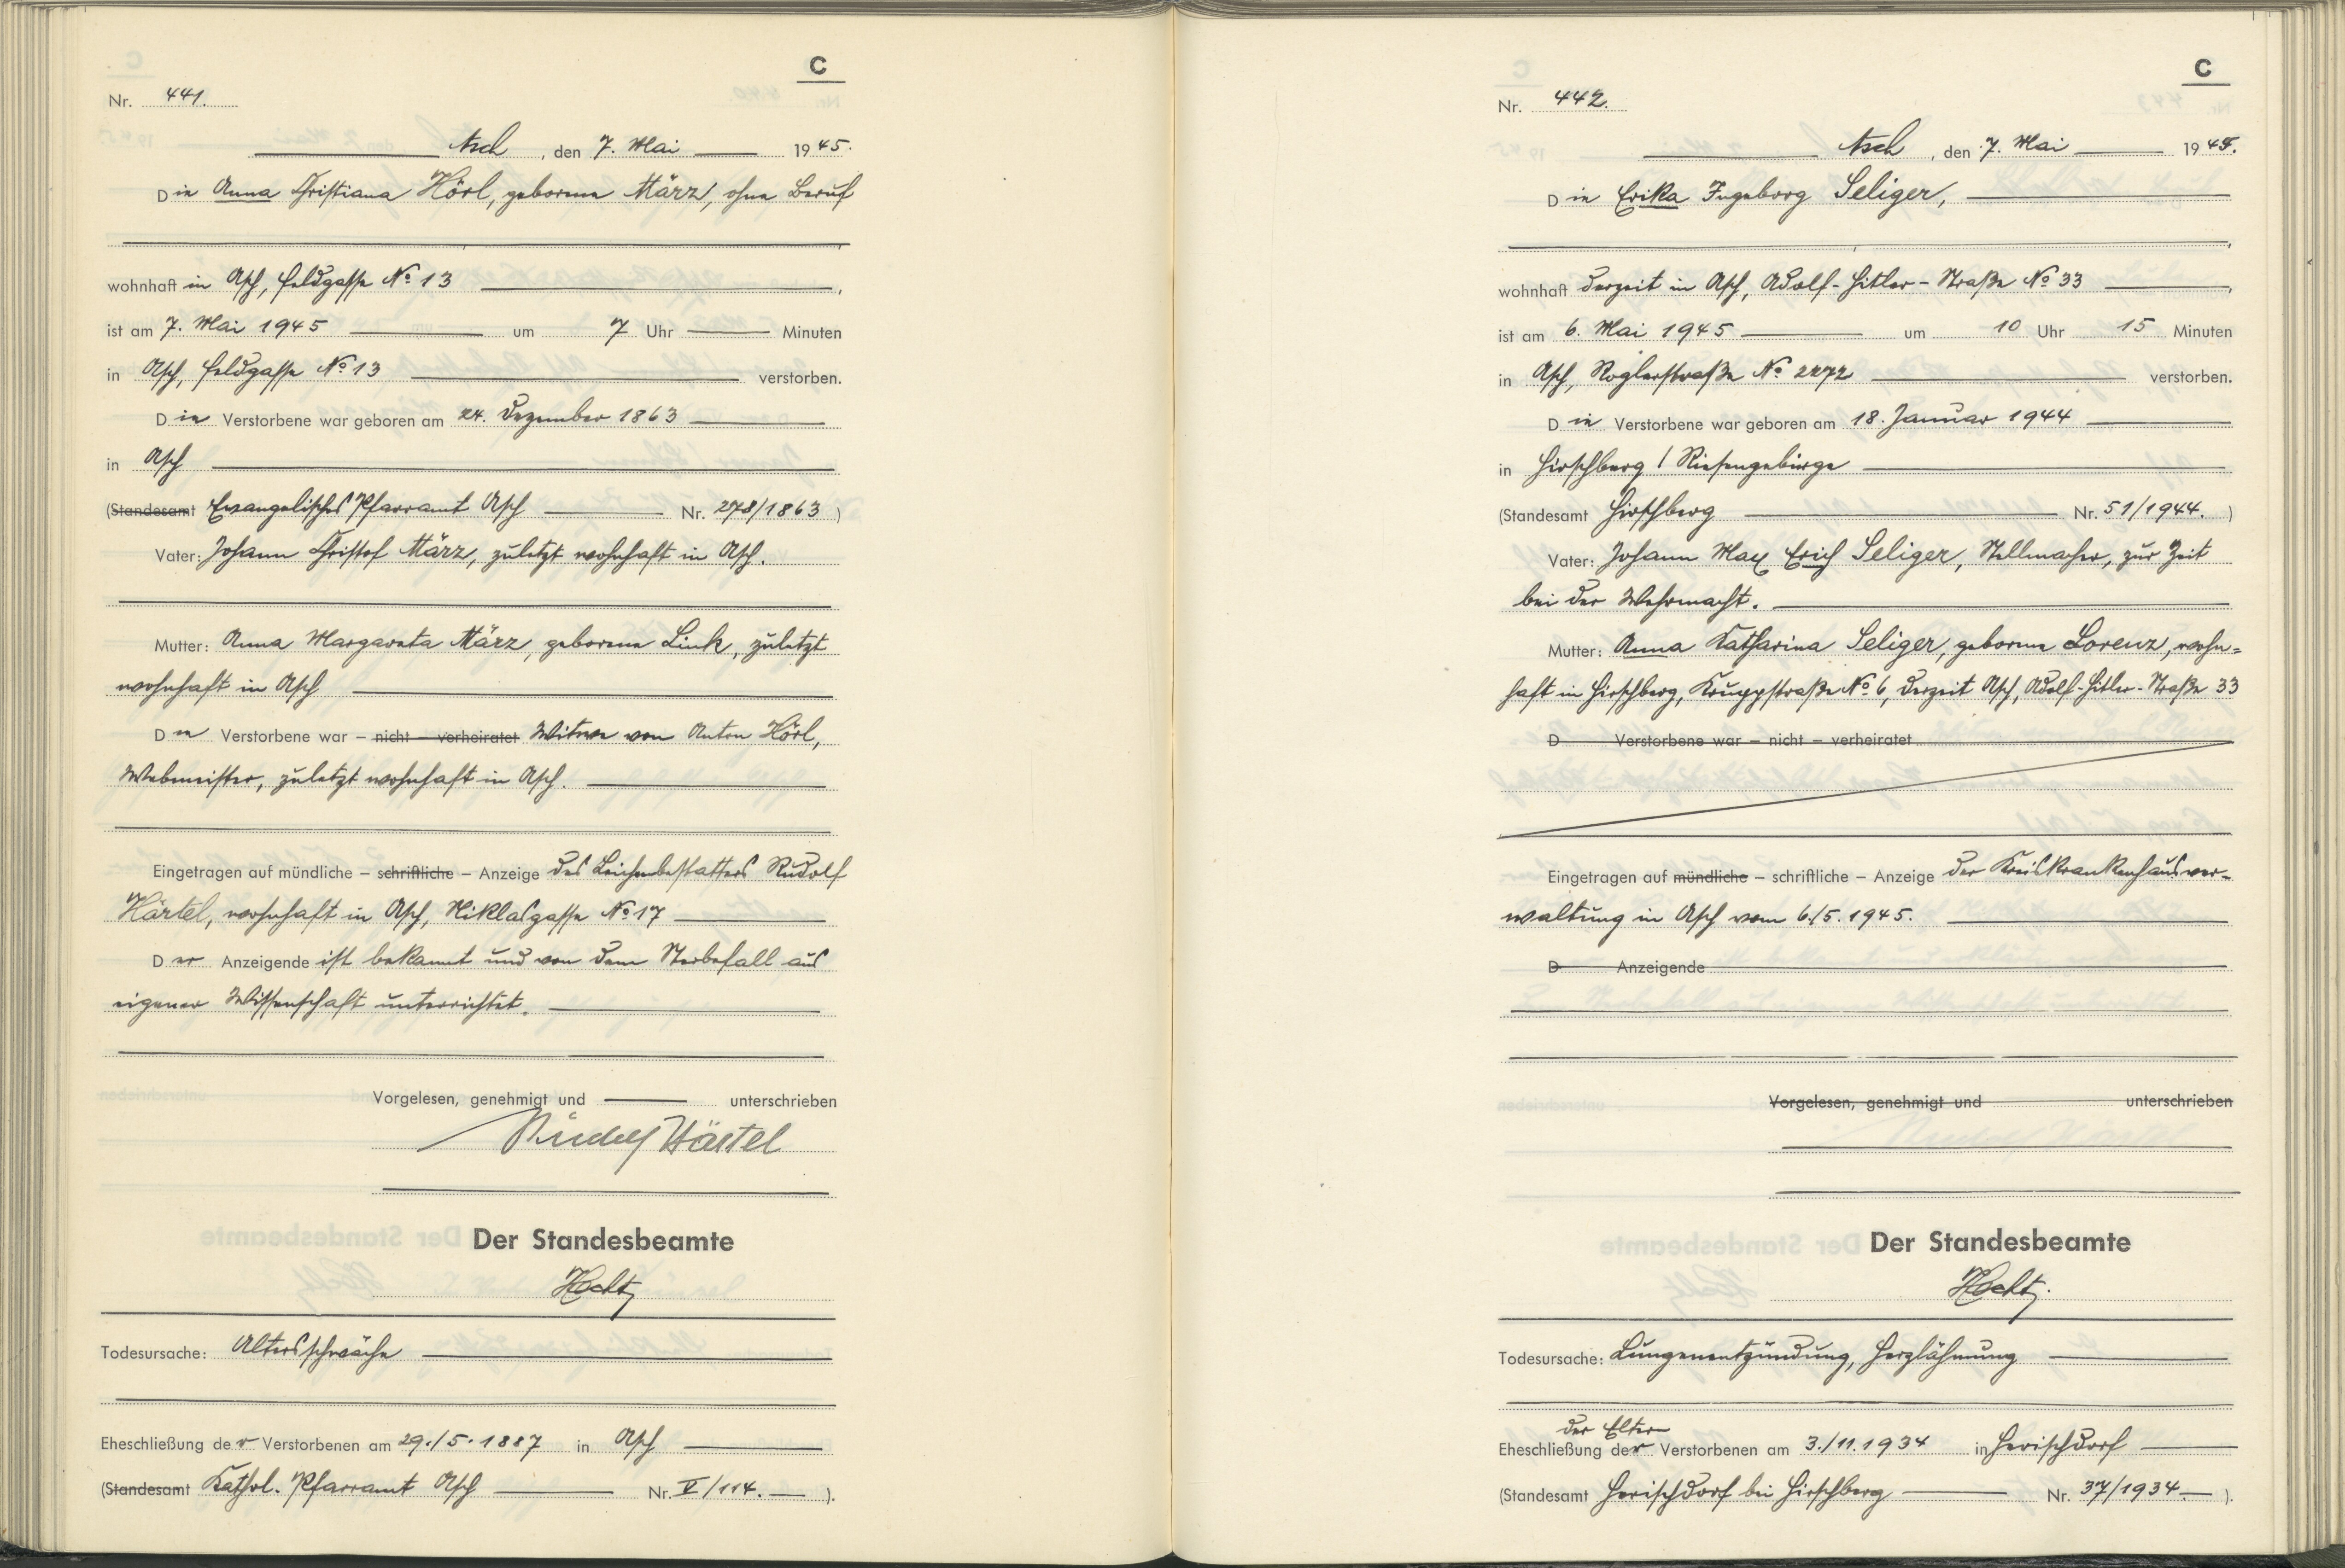 C
Nr. 441.
Asch, den 7. Mai 1945.
Die Anna Christiana Hörl, geborene März, ohne Beruf
wohnhaft in Asch, Feldgasse No 13,
ist am 7. Mai 1945 um 7 Uhr Minuten
in Asch, Feldgasse No 13 verstorben.
Die Verstorbene war geboren am 24. Dezember 1863
in Asch
(Standesamt Evangelisches Pfarramt Asch Nr. 278/1863)
Vater: Johann Christof März, zuletzt wohnhaft in Asch.
Mutter: Anna Margareta März, geborene Link, zuletzt
wohnhaft in Asch
Die Verstorbene war – nicht – verheiratet Witwe von Anton Hörl,
Webmeister, zuletzt wohnhaft in Asch.
Eingetragen auf mündliche – schriftliche – Anzeige des Leichenbestatters Rudolf
Härtel, wohnhaft in Asch, Niklasgasse No 17
Der Anzeigende ist bekannt und von dem Sterbefall aus
eigener Wissenschaft unterrichtet.
Vorgelesen, genehmigt und unterschrieben
Rudolf Härtel
Der Standesbeamte
Hecht
Todesursache: Altersschwäche
Eheschließung der Verstorbenen am 29./5.1887 in Asch
(Standesamt Kathol. Pfarramt Asch Nr. V/114.).
C
Nr. 442.
Asch, den 7. Mai 1945.
Die Erika Ingeborg Seliger,
wohnhaft derzeit in Asch, Adolf-Hitler-Straße No 33,
ist am 6. Mai 1945 um 10 Uhr 15 Minuten
in Asch, Roglerstraße No 2272 verstorben.
Die Verstorbene war geboren am 18. Januar 1944
in Hirschberg / Riesengebirge
(Standesamt Hirschberg Nr. 51/1944.)
Vater: Johann Max Erich Seliger, Stellmacher, zur Zeit
bei der Wehrmacht.
Mutter: Anna Katharina Seliger, geborene Lorenz, wohn=
haft in Hirschberg, Kruppstraße No 6, derzeit Asch, Adolf-Hitler-Straße 33
D Verstorbene war – nicht – verheiratet
Eingetragen auf mündliche – schriftliche – Anzeige der Kreiskrankenhausver-
waltung in Asch vom 6./5.1945.
D Anzeigende
Vorgelesen, genehmigt und unterschrieben
Der Standesbeamte
Hecht.
Todesursache: Lungenentzündung, Herzlähmung
der Eltern
Eheschließung der Verstorbenen am 3./11.1934 in Herischdorf
(Standesamt Herischdorf bei Hirschberg Nr. 37/1934.).